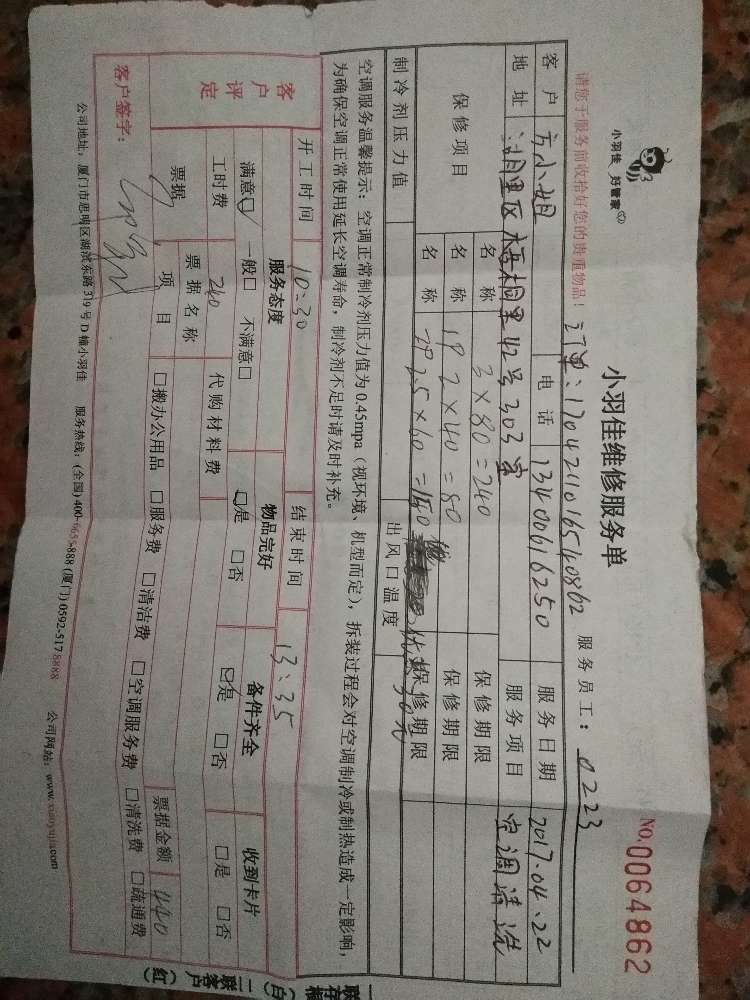 小羽佳 好管家
小羽佳维修服务单
NO.0064862
请您于服务前收拾好您的贵重物品!
订单:1704211016540862 服务员工:0223
客户 方小姐 电话 13400616250 服务日期 2017.04.22
地址 湖里区 梧桐里42号303室 服务项目 空调清洗
保修项目
名称 3×80=240 保修期限
名称 1P 2×40=80 保修期限
名称 2P 2.5×60=150 保修期限
制冷剂压力值 出风口温度
空调服务温馨提示:空调正常制冷剂压力值为0.45mpa(视环境、机型而定),拆装过程会对空调制冷或制热造成一定影响,
为确保空调正常使用延长空调寿命,制冷剂不足时请及时补充。
开工时间 10:30 结束时间 13:35
客户评定
服务态度 物品完好 备件齐全 收到卡片
满意☑ 一般□ 不满意□ ☑是 □否 ☑是 □否 □是 □否
工时费 240 代购材料费
票据 票据名称 票据金额 440
项目 □搬办公用品 □服务费 □清洁费 □空调服务费 □清洗费 □疏通费
客户签字:
公司地址:厦门市思明区湖滨东路319号D幢小羽佳 服务热线:(全国)400-6655-888(厦门)0592-5178888 公司网站:www.xiaoyujia.com
二联客户(红)